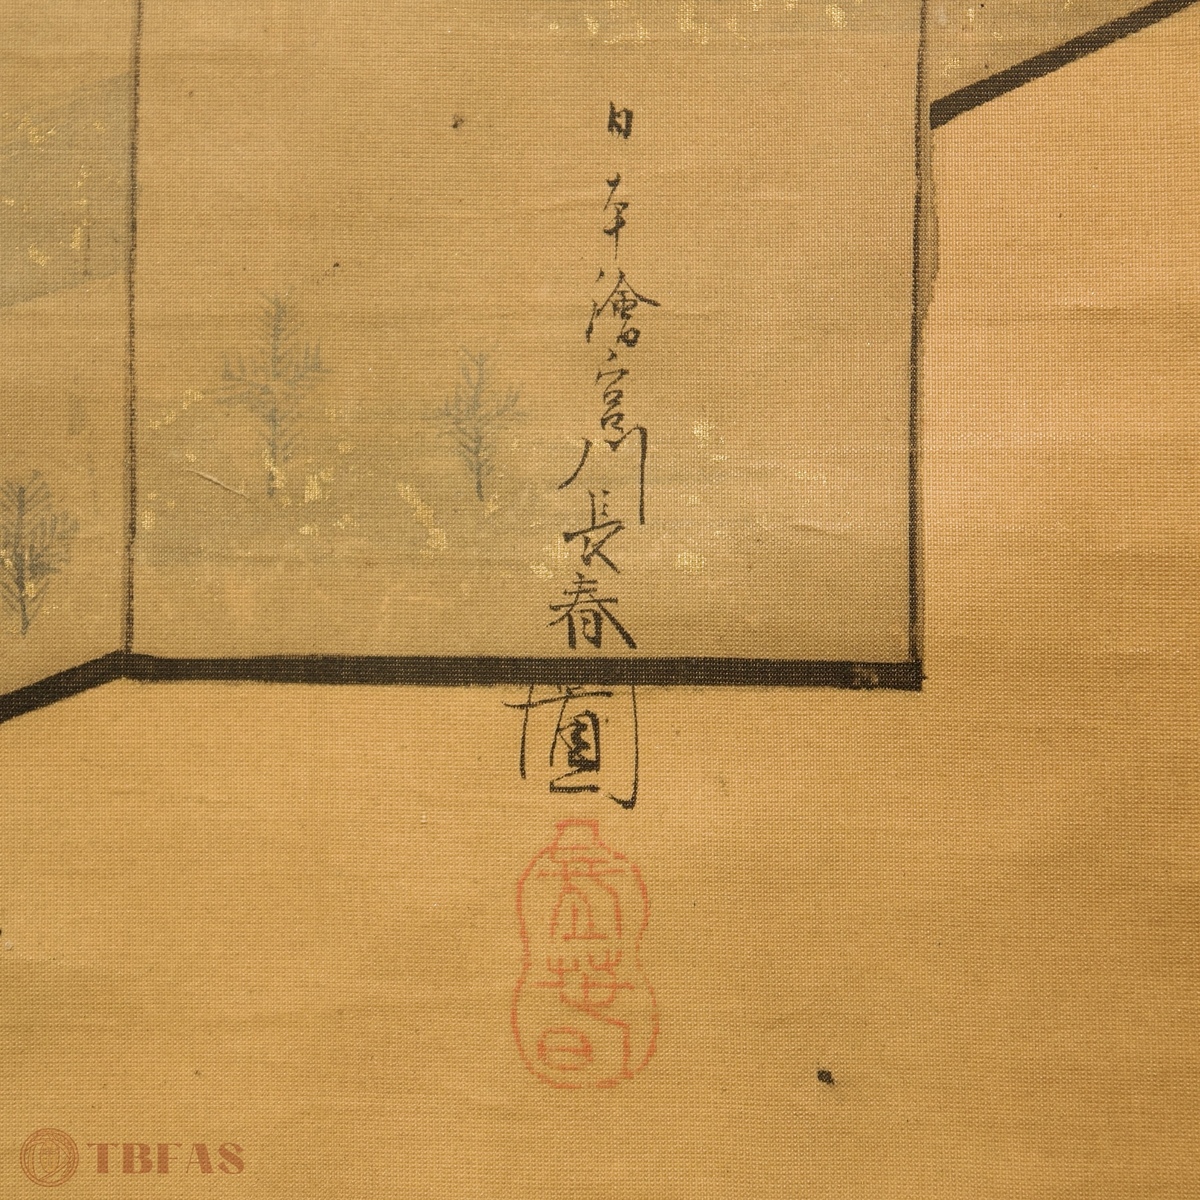 日本繪宮川長春圖
長春
TBFAS